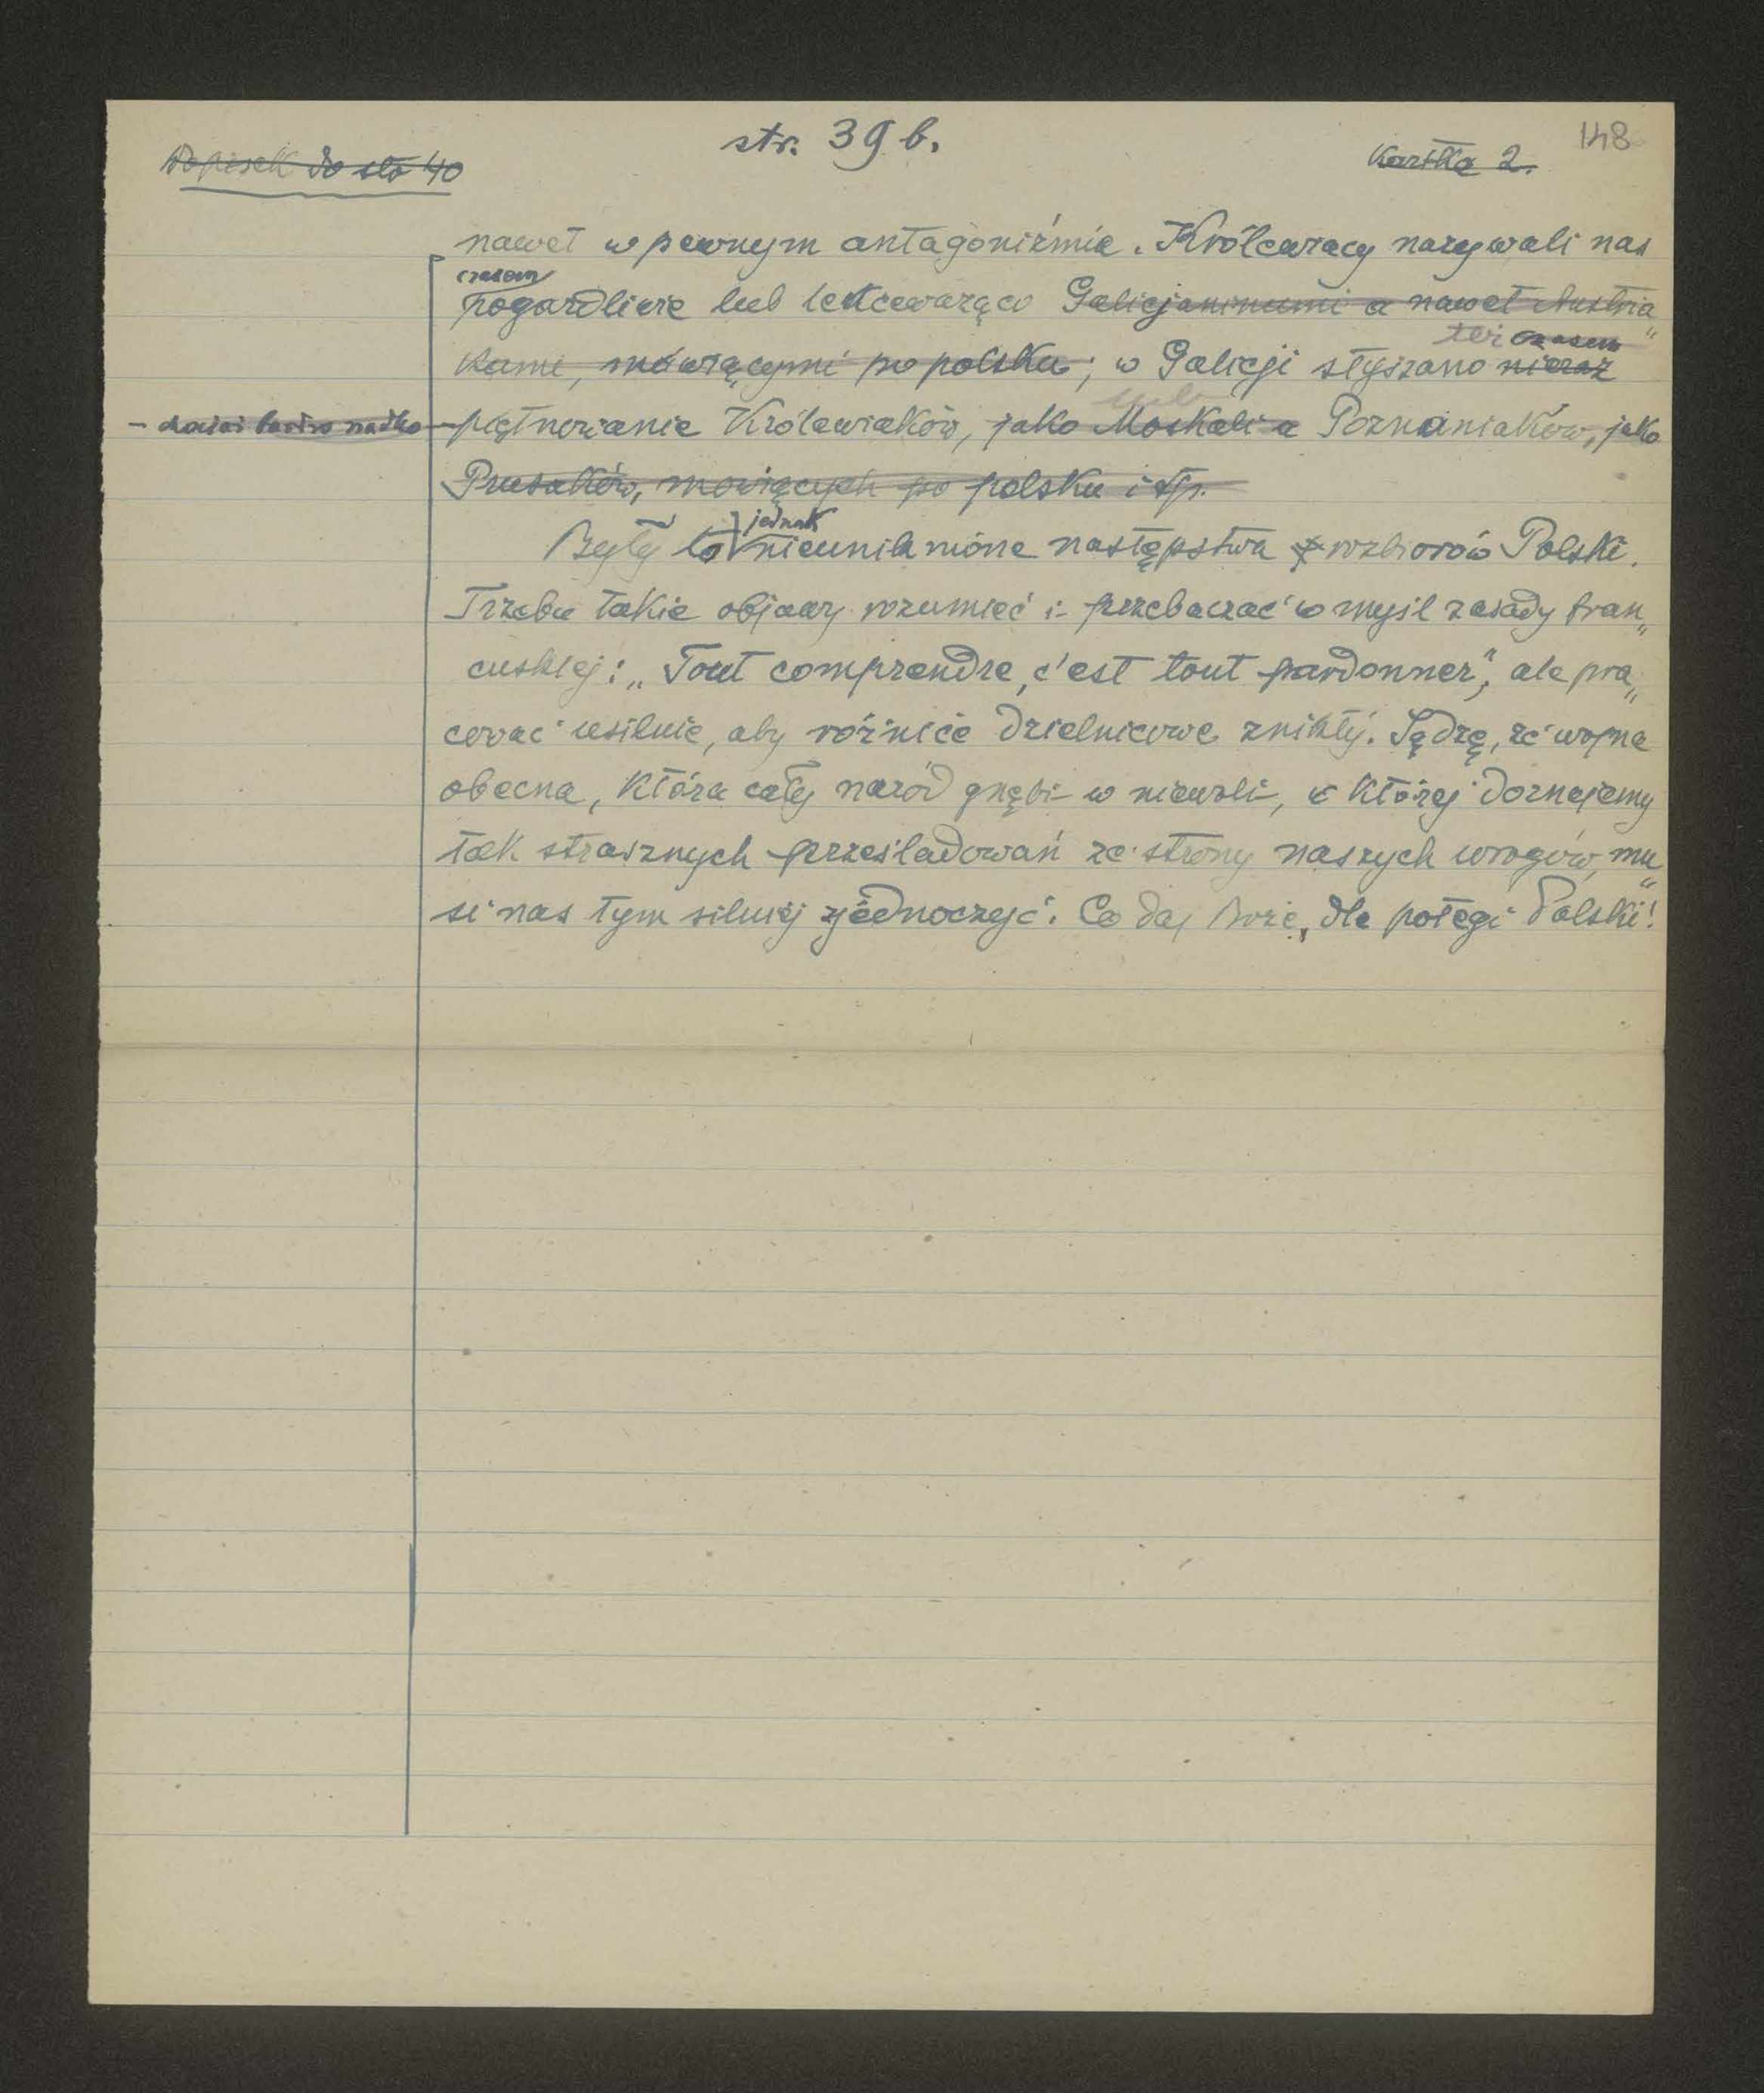 str. 39 b.
148
Dopisek do str 40
Kartka 2.
nawet w pewnym antagoniźmie. Królewiacy nazywali nas
czasem
pogardliwie lub lekceważąco Galicjaninami a nawet Austria„
też czasem
kami, mówiącymi po polsku; w Galicji słyszano nieraz
lub
- chociaż bardzo rzadko -
piętnowanie Królewiaków, jako Moskali a Poznaniaków, jako
Prusaków, mówiących po polsku i tp.
jednak
Były to nieuniknione następstwa rozbiorów Polski.
Trzeba takie objawy rozumieć i przebaczać w myśl zasady fran„
cuskiej: „Tout comprendre, c'est tout pardonner", ale pra„
cować usilnie, aby różnice dzielnicowe znikły. Sądzę, że wojna
obecna, która cały naród gnębi w niewoli, w której doznajemy
tak strasznych prześladowań ze strony naszych wrogów, mu„
si nas tym silniej zjednoczyć. Co daj Boże, dla potęgi Polski!